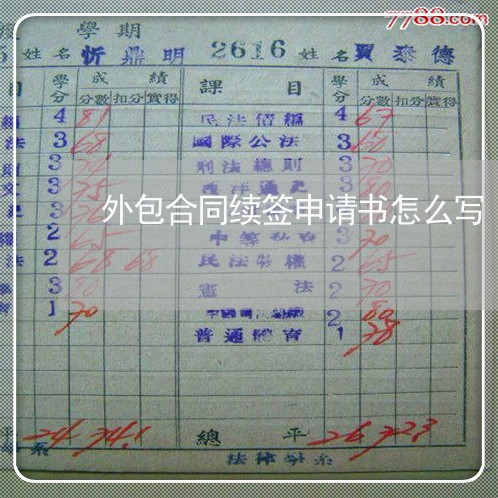 7788.com
學期
姓名 忻鼎明 2616 姓名 賈泰德
目 學分 成績 課目 學分 成績
分數 扣分 實得 分數 扣分 實得
4 81 民法債編 4 67
法 3 68 國際公法 3 60
3 刑法總則 3 70
3 75 西洋通史 3 80
外包合同续签申请书怎么写
2 65 3 70
法 2 68 68 民法物權 2 65
3 80 憲法 2 70
1 70 2 80
普通體育 1 78
平 24 74.1 總平 26 72.3
系 法律學系